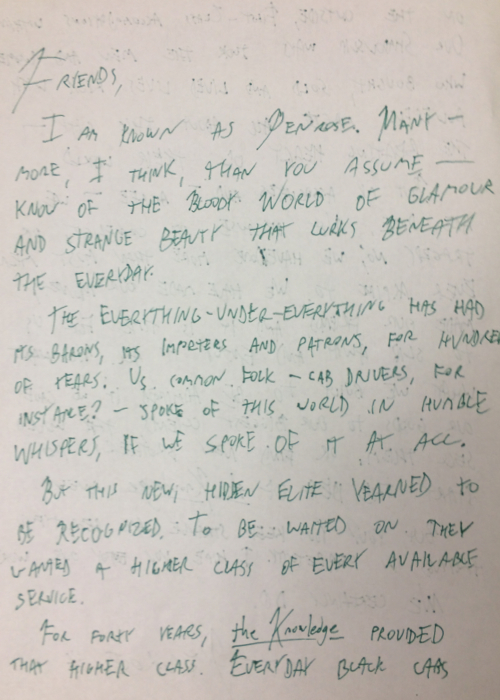 Friends,
I am known as Penrose. Many —
more, I think, than you assume —
know of the bloody world of glamour
and strange beauty that lurks beneath
the everyday.
The everything-under-everything has had
its barons, its importers and patrons, for hundred
of years. Us common folk – cab drivers, for
instance? – spoke of this world in humble
whispers, if we spoke of it at all.
But this new, hidden elite yearned to
be recognized. To be waited on. They
wanted a higher class of every available
service.
For forty years, the Knowledge provided
that higher class. Everyday black cabs